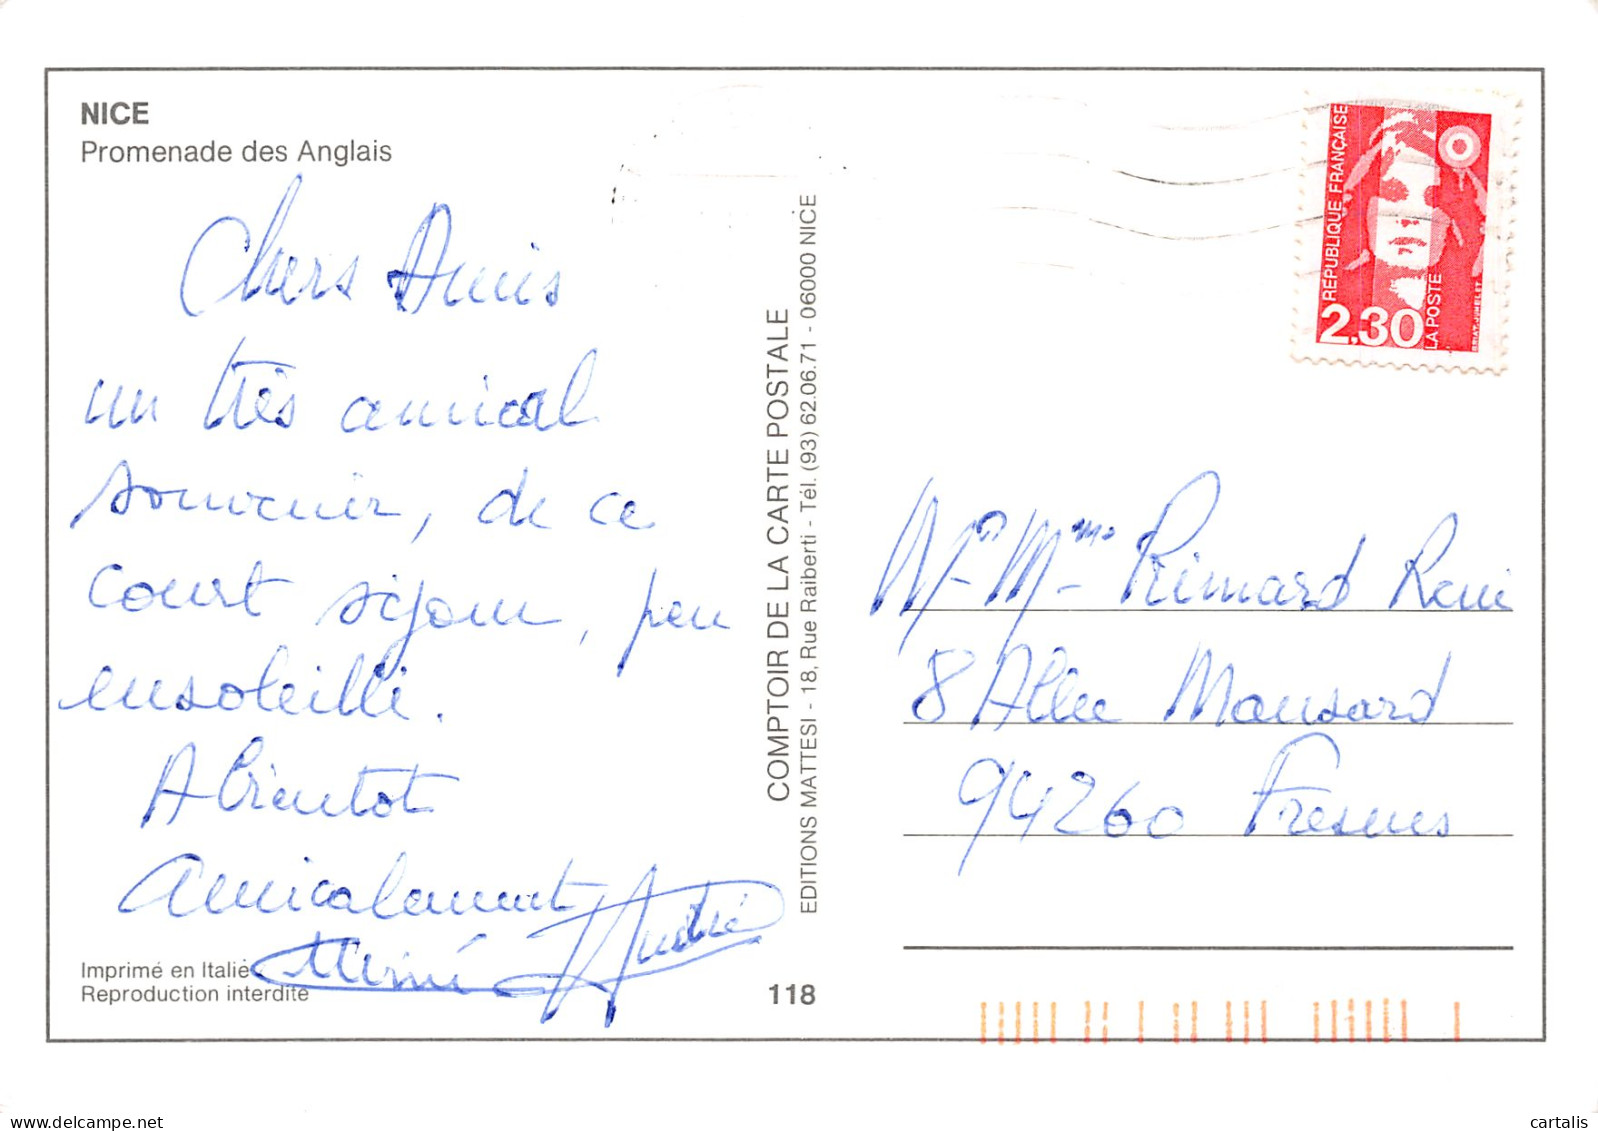 NICE
Promenade des Anglais
Chers Amis
un très amical
souvenir, de ce
court séjour, peu
ensoleillé.
A bientot
Amicalement
André
Imprimé en Italie
Reproduction interdite
118
COMPTOIR DE LA CARTE POSTALE
EDITIONS MATTESI - 18, Rue Raiberti - Tél. (93) 62.06.71 - 06000 NICE
REPUBLIQUE FRANÇAISE
2,30
LA POSTE
BRIAT.JUMELET
Mr Mme Rimard René
8 Allée Mansard
94260 Fresnes
cartalis
delcampe.net